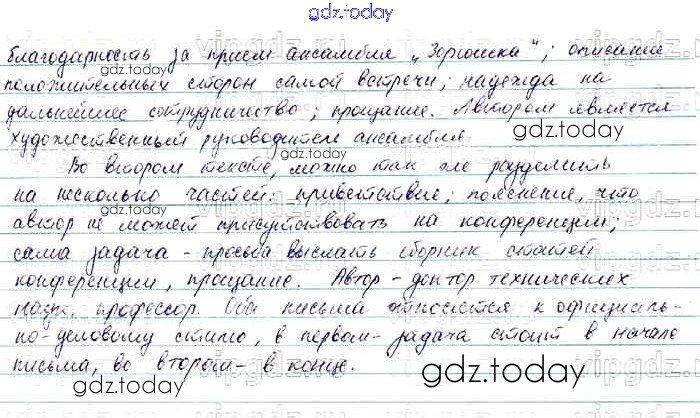 gdz.today
благодарность за прием ансамбля „Зорюшка“; описание
gdz.today
положительных сторон самой встречи; надежда на
дальнейшее сотрудничество; прощание. Автором является
художественный руководитель ансамбля.
gdz.today
Во втором тексте, можно так же разделить
на несколько частей: приветствие; пояснение, что
автор не может присутствовать на конференции;
сама задача - просьба выслать сборник статей
конференции, прощание. Автор - доктор технических
наук, профессор. Оба письма относятся к официаль-
но-деловому стилю, в первом - задача стоит в начале
письма, во втором - в конце.
gdz.today
gdz.today
vipgdz.ru